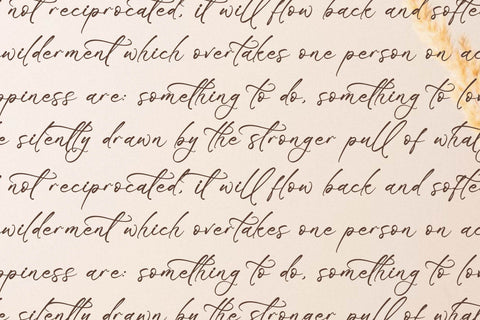 not reciprocated, it will flow back and softe
wilderment which overtakes one person on ac
ppiness are: something to do, something to lov
e silently drawn by the stronger pull of what
not reciprocated, it will flow back and softe
wilderment which overtakes one person on ac
ppiness are: something to do, something to lov
e silently drawn by the stronger pull of what